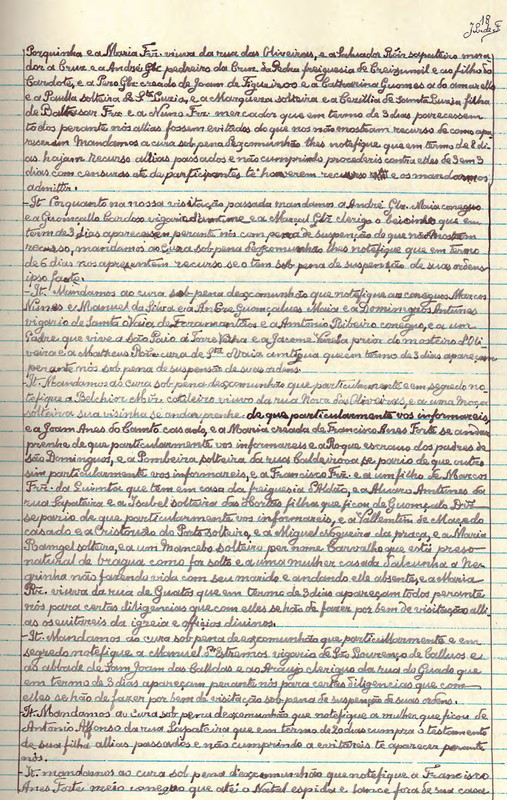 18
Porquinha e a Maria Frz. viuva da rua das Oliveiras, e a Salvador Roiz sapateiro mora-
dor a Cruz e a André Glz pedreiro da Cruz da Pedra freiguesia de Creixomil e ao filho do
Cardote, e a Pero Glz creado de Joam de Figueiroo e a Catharina Guomes a do amarello
e a Paulla solteira de Sta Luzia, e a Marguereza solteira e a Cezillia de Samta Luzia filha
de Balthesar Frz e a Nuno Frz mercador que em termo de 3 dias parecessem
todos perante nós allias fossem evitados do que nos não mostram recurso de como apa-
receram Mandamos a cura sob pena de excomunhão lhes notefique, que em termo de 8 di-
as hajam recurso allias passados e não cumprindo procedereis contra elles de 3 em 3
dias com censuras até de participantes té haverem recurso e os mandarmos
admittir.
- It. Porquanto na nossa visitação passada mandamos a André Glz. Maia conego
e a Guomçallo Cardoso vigario d'Antime, e a Marçal Glz clerigo o Ceisinho que em
termo de 3 dias aparecessem perante nós com pena de suspenção de que não mostram
recurso, mandamos ao Cura sob pena de excomunhão lhes notefique que em termo
de 6 dias nos apresentem recurso se o tem sob pena de suspenção de suas ordens
ipso facto.
- It. Mandamos ao cura sob pena de excomunhão que notefique aos conegos Marcos
Nunes e Manuel da Silva e a André Guomçalves Maia e a Domingos Antunes
vigario de Samta Vaia de Fermentões e a Antonio Ribeiro conego, e a um
Padre que vive a São Paio de Torre Velha e a Jacome Varela prior do mosteiro d'Oli-
veira e a Matheus Roiz cura de Sta Vaia antiga que em termo de 3 dias apareçam
perante nós sob pena de suspensão de suas ordens.
- It. Mandamos ao Cura sob pena de excomunhão que particularmente e em segredo no-
tefique a Belchior Miz cotileiro viuvo da rua Nova das Oliveiras, e a uma moça
solteira sua visinha se andar prenhe de que particularmente vos informareis,
e a Joam Anes do Camto casado, e a Maria creada de Francisco Anes Forte se andar
prenhe de que particularmente vos informareis e a Roque escravo dos padres de
São Domingos, e a Pombeira solteira da rua Caldeiroa se pario de que outro
sim particularmente vos informareis, e a Francisco Frz. e a um filho de Marcos
Frz. da Quimta que tem em casa da freiguesia d'Aldão, e a Alvaro Antunes da
rua Sapateira e a Izabel solteira das Hortas filha que ficou de Guomçalo Diz
se pario de que particularmente vos informareis, e a Vallentim de Macedo
casado e a Cristovão do Porto solteiro, e a Miguel Nogueira da praça, e a Maria
Rangel solteira, e a um Mancebo solteiro per nome Carvalho que está preso
natural de Bragua como for solto e a uma mulher casada Salcunha a Ne-
grinha não fazendo vida com seu marido e andando elle absente, e a Maria
Piz. viuva da rua de Guatos que em termo de 3 dias apareçam todos perante
nós para certas diligencias que com elles se hão de fazer por bem de visitação alli-
as os evitareis da igreia e officios divinos.
- It. Mandamos ao cura sob pena de excomunhão que particullarmente e em
segredo notefique a Manuel Estremos vigario de São Lourenço de Calluos e
ao abbade de Sam Joam das Calldas e ao Araujo clerigo da rua do Guado que
em termo de 3 dias apareçam perante nós para certas diligencias que com
elles se hão de fazer por bem de visitação sob pena de suspensão de suas ordens.
- It. Mandamos ao Cura sob pena de excomunhão que notefique a mulher que ficou de
Antonio Affonso da rua Sapateira que em termo de 20 dias cumpra o testamento
de sua filha allias passados e não cumprindo a evitareis te aparecer perante
nós.
- It. mandamos ao cura sob pena d'excomunhão que notefique a Francisco
Anes Forte meio conego que até o Natal espida e lance fora de sua casa